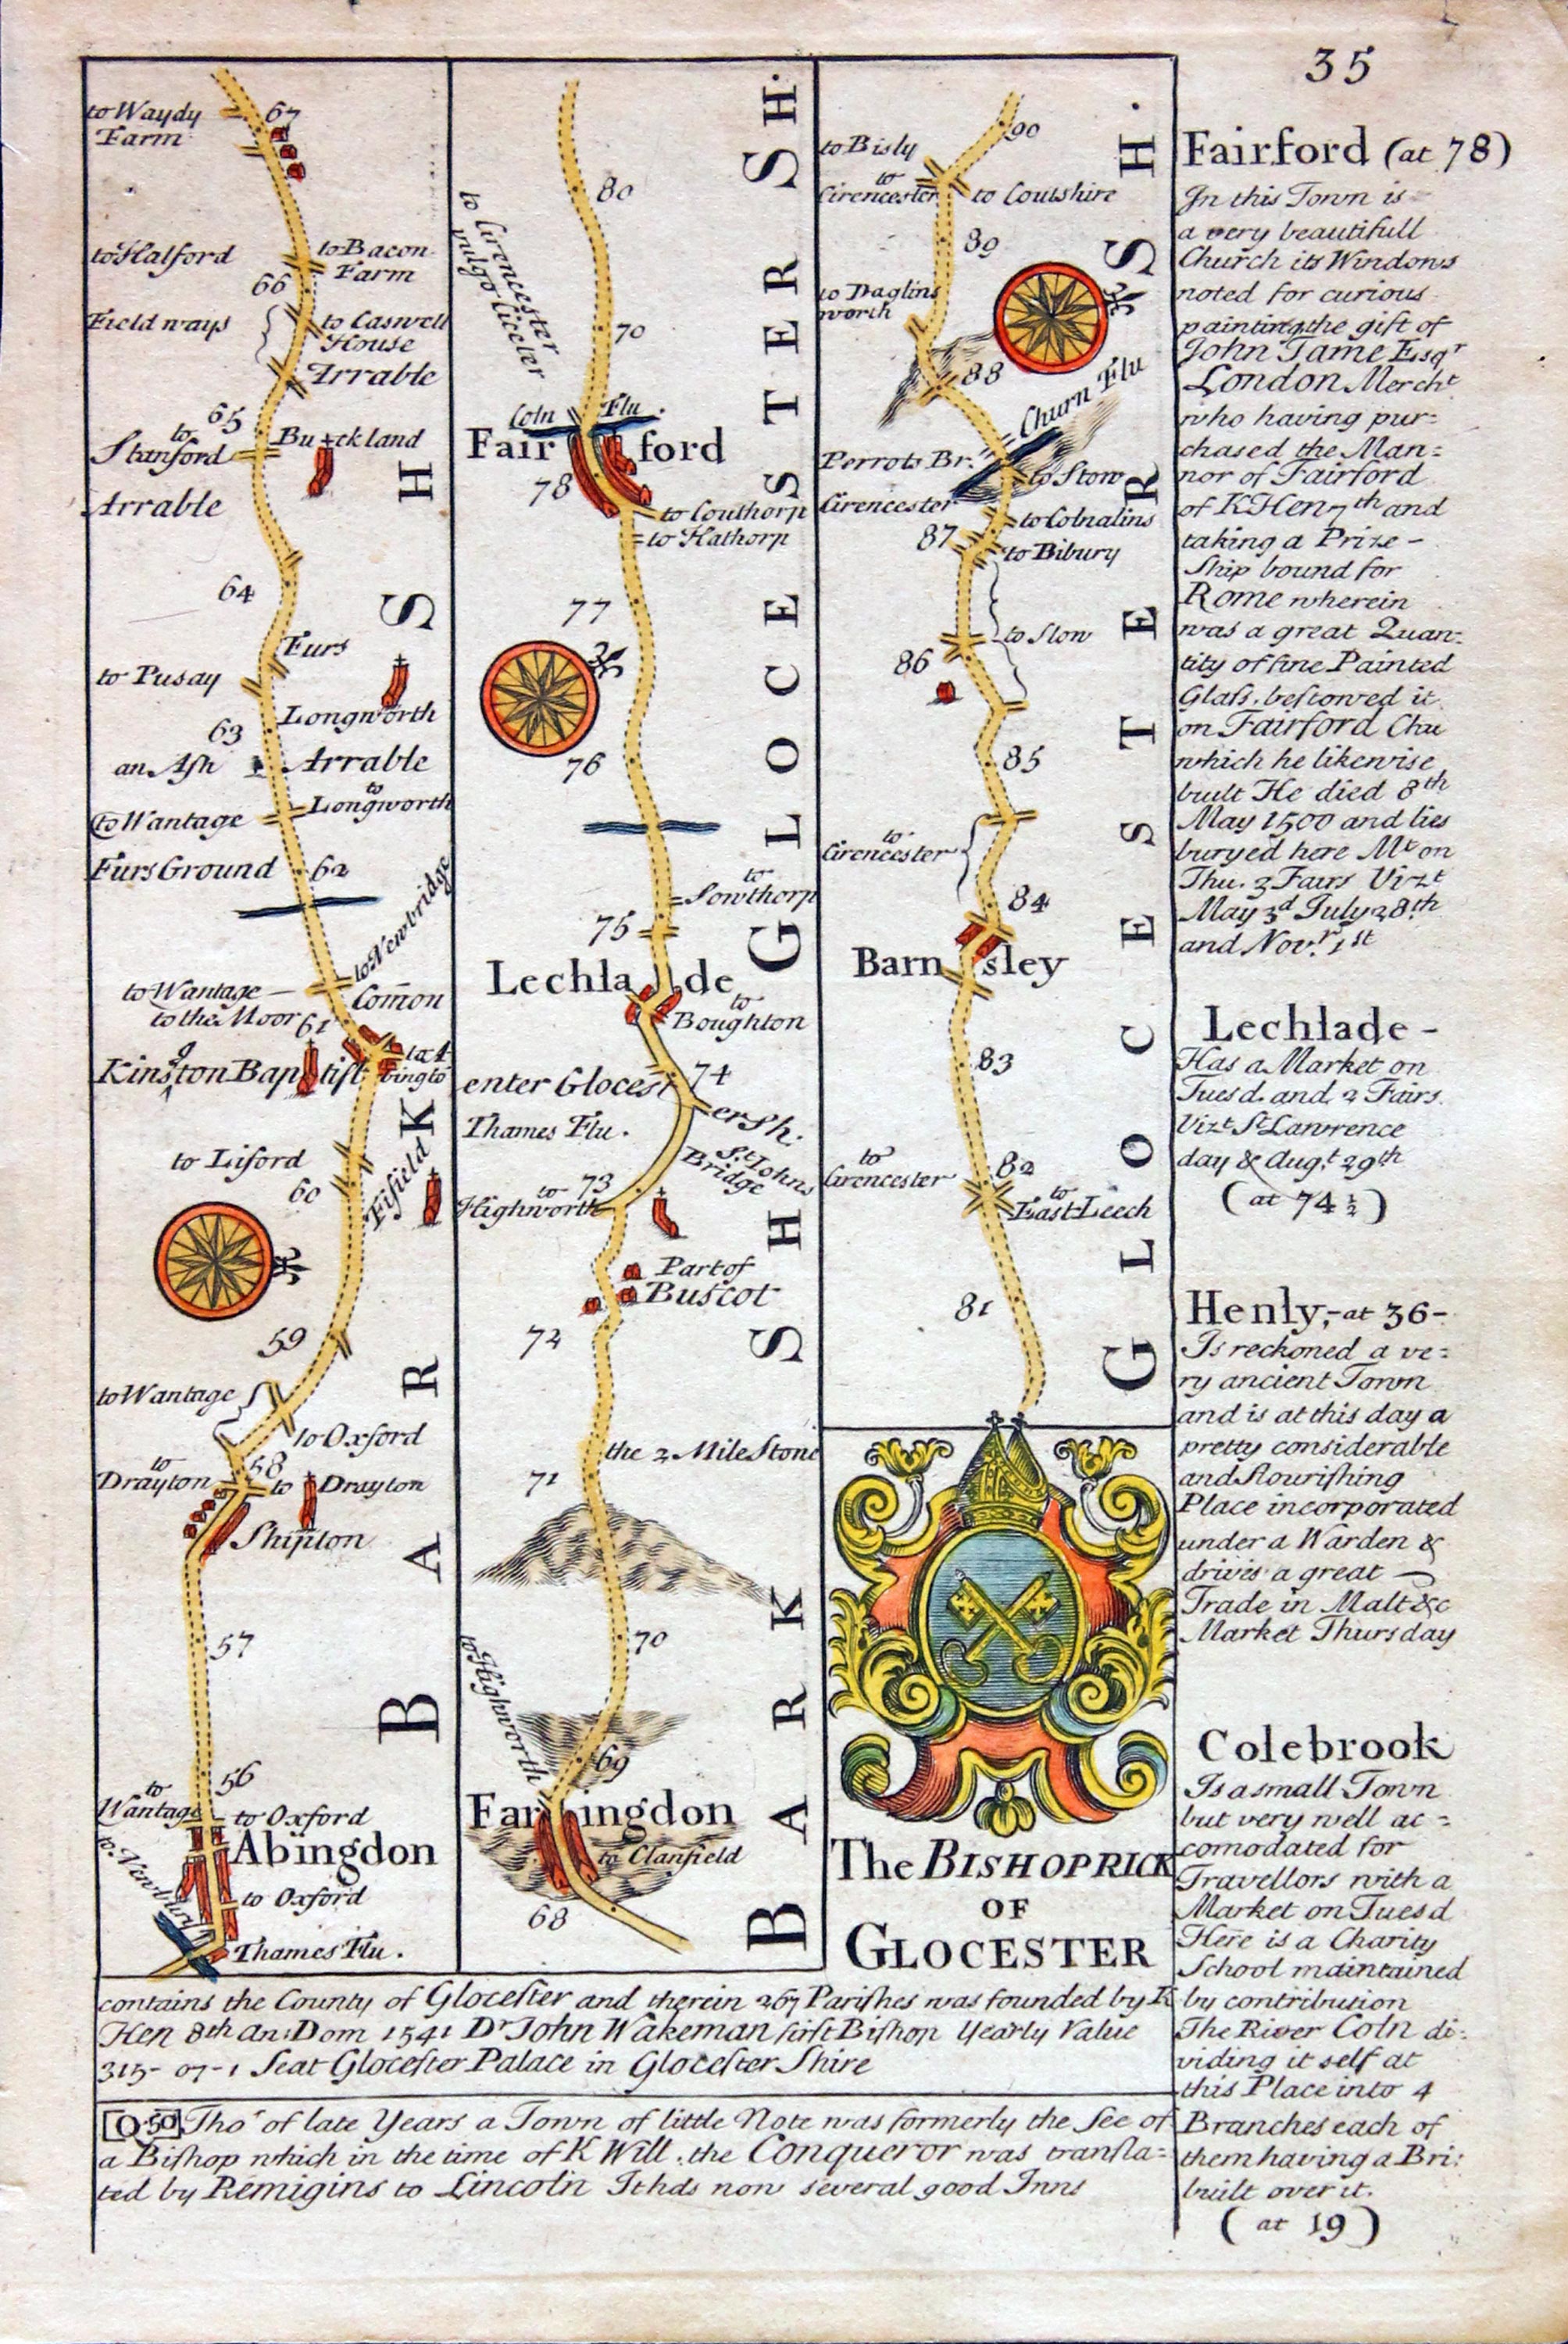 35
to Waydy
Farm
67
to Halford
to Bacon
Farm
66
Field ways
to Caswell
House
Arrable
65
to
Stanford
Buckland
Arrable
64
Furs
to Pusay
Longworth
63
an Ash
Arrable
to
Longworth
to Wantage
Furs Ground
62
to Newbridge
to Wantage
Comon
to the Moor
61
Kingston Baptist
to Liford
60
Fifield
59
to Wantage
to Oxford
58
to
Drayton
to Drayton
Shipton
57
56
to
Wantage
to Oxford
Abingdon
to Newbury
to Oxford
Thames Flu.
BARK SH
80
to Cirencester
vulgo Ciceter
70
Coln Flu.
Fairford
78
to Couthorp
to Hathorp
77
76
to
Sowthorp
75
Lechlade
to
Boughton
74
enter Glocester Sh.
Thames Flu.
St. Iohns
Bridge
73
to
Highworth
Part of
Buscot
72
the 2 Mile Stone
71
70
to Highworth
69
Faringdon
to Clanfield
68
GLOCESTER SH.
BARK SH
90
to Bisly
to
Cirencester
to Coulshire
89
to Daglins
worth
88
Churn Flu
Perrots Br.
to Stow
Cirencester
to Colnalins
87
to Bibury
to Slow
86
85
to
Cirencester
84
Barnsley
83
82
to
Cirencester
to
East Leech
81
GLOCESTER SH.
The BISHOPRICK
OF
GLOCESTER
contains the County of Glocester and therein 267 Parishes was founded by K
Hen 8th An: Dom 1541 Dr John Wakeman first Bishop Yearly Value
315- 07-1 Seat Glocester Palace in Glocester Shire
O.50 Tho' of late Years a Town of little Note was formerly the See of
a Bishop which in the time of K Will. the Conqueror was transla=
ted by Remigins to Lincoln It hds now several good Inns
Fairford (at 78)
In this Town is
a very beautifull
Church its Windows
noted for curious
painting the gift of
John Tame Esqr
London Mercht
who having pur=
chased the Man=
nor of Fairford
of K Hen 7th and
taking a Prize -
Ship bound for
Rome wherein
was a great Quan=
tity of fine Painted
Glass, bestowed it
on Fairford Chu
which he likewise
built He died 8th
May 1500 and lies
buryed here Mt on
Thu. 3 Fairs Vizt
May 3d July 28th
and Novr. 1st
Lechlade -
Has a Market on
Tuesd. and 2 Fairs
Vizt St Lawrence
day & Augt 29th
(at 74 1/2)
Henly, - at 36 -
Is reckoned a ve=
ry ancient Town
and is at this day a
pretty considerable
and flourishing
Place incorporated
under a Warden &
drives a great
Trade in Malt &c
Market Thursday
Colebrook
Is a small Town
but very well ac=
comodated for
Travellors with a
Market on Tuesd
Here is a Charity
School maintained
by contribution
The River Coln di:
viding it self at
this Place into 4
Branches each of
them having a Bri:
built over it.
(at 19)